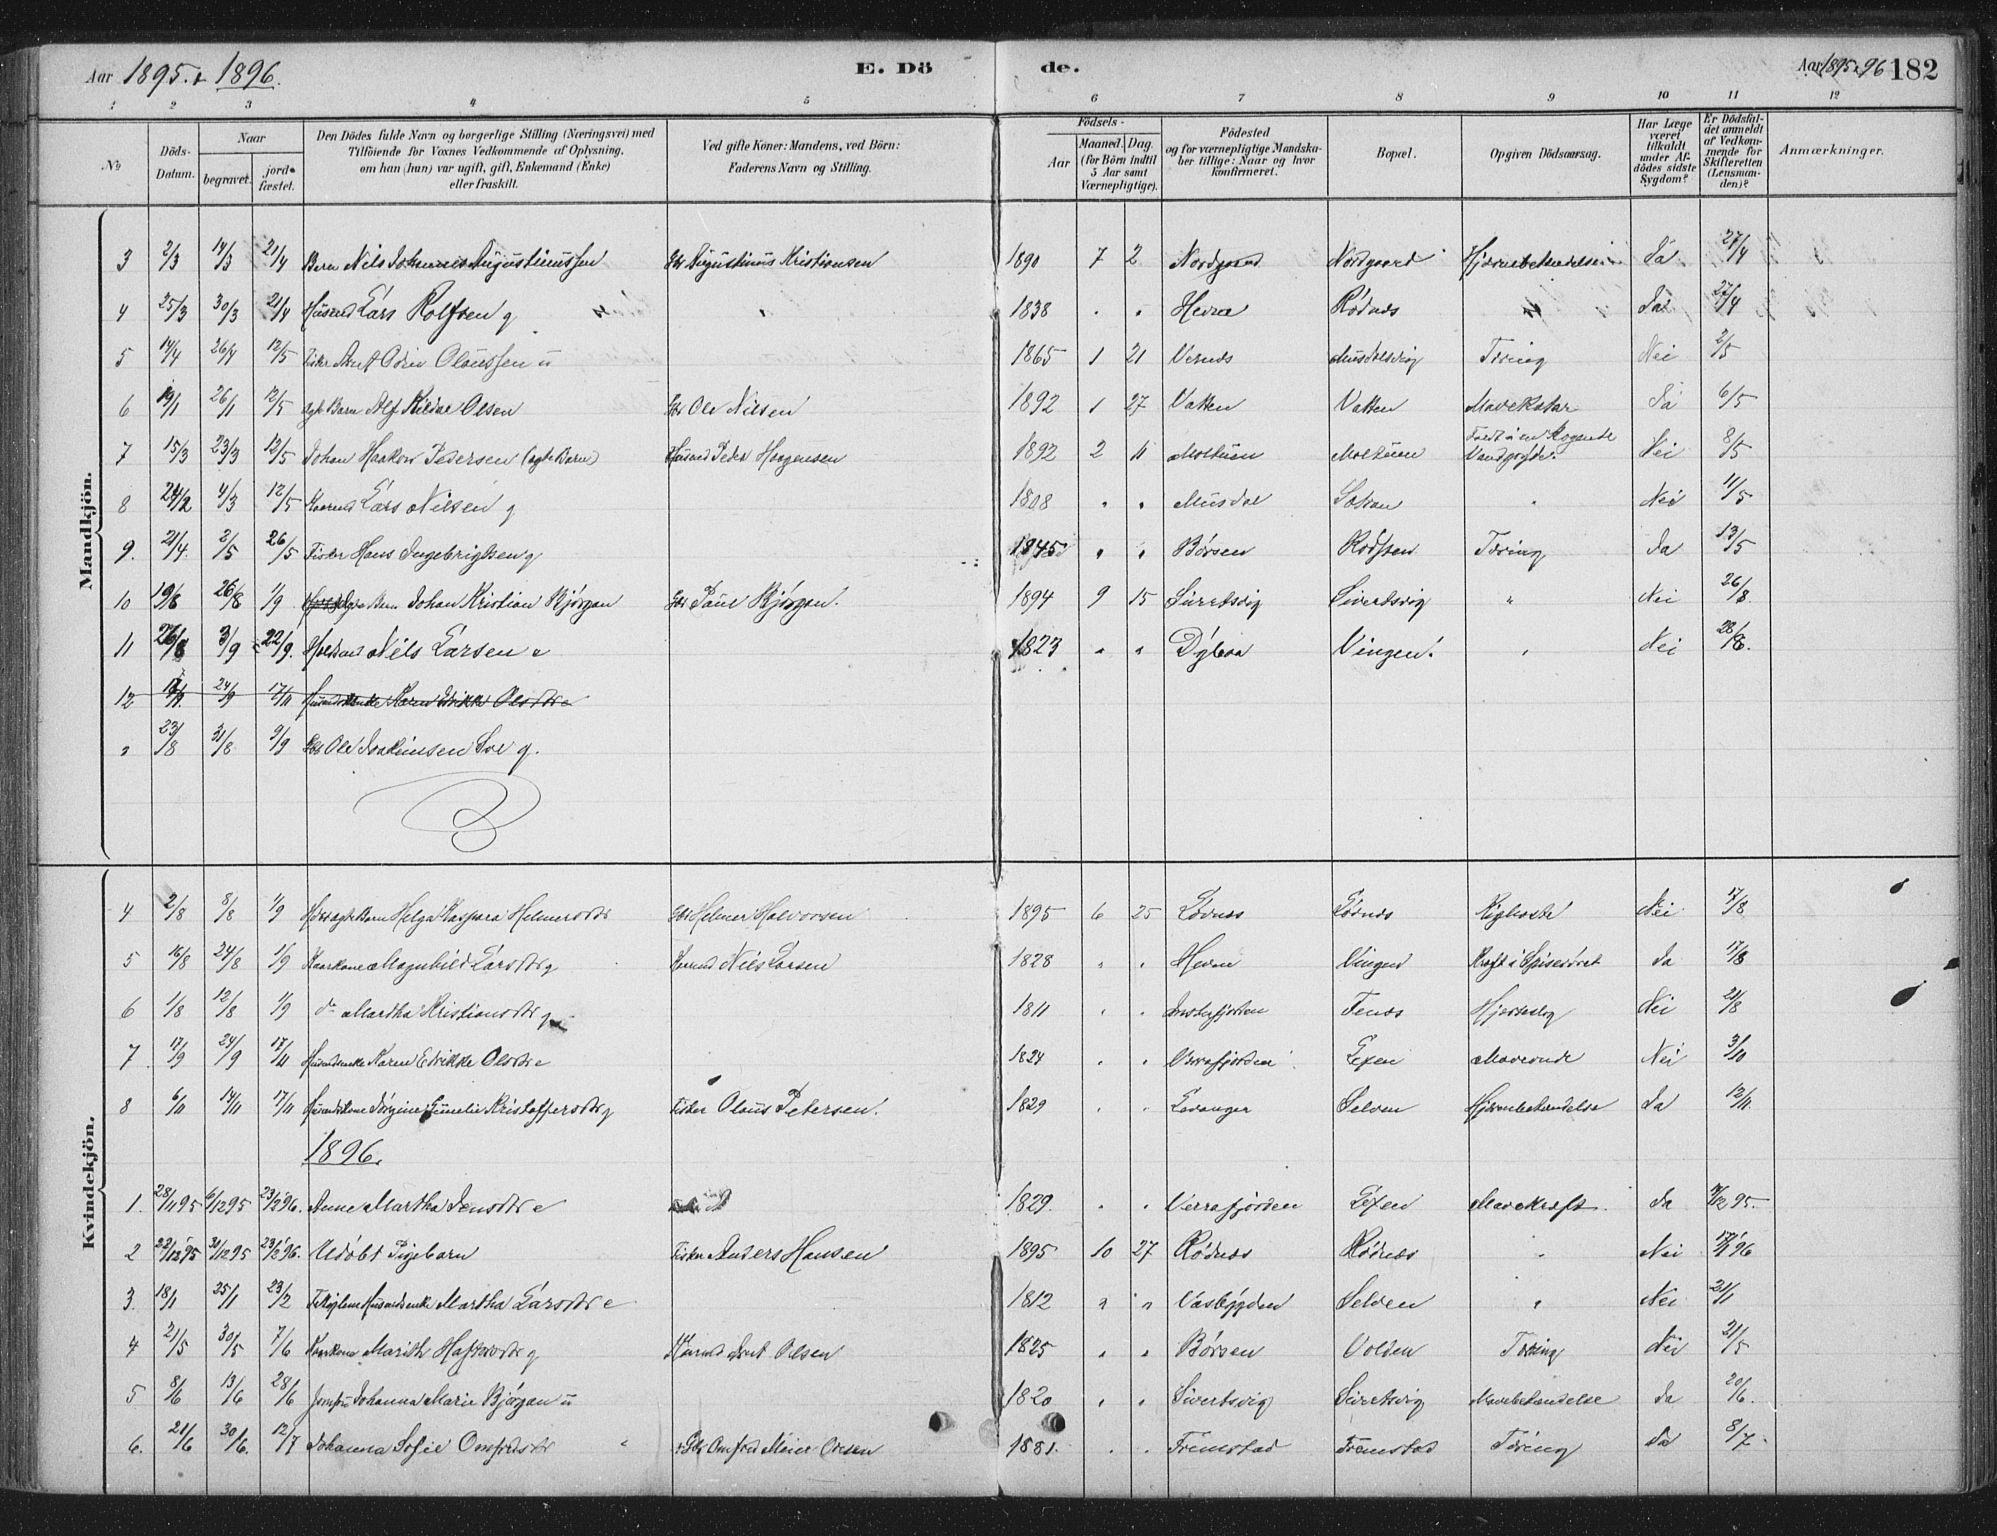 Aar 1895. & 1896.
E. Döde.
Aar 1895 & 96 182
1 2 3 4 5 6 7 8 9 10 11 12
No
Döds-Datum.
Naar
begravet.
jordfæstet.
Den Dödes fulde Navn og borgerlige Stilling (Næringsvei) med
Tilföiende for Voxnes Vedkommende af Oplysning,
om han (hun) var ugift, gift, Enkemand (Enke)
eller fraskilt.
Ved gifte Koner: Mandens, ved Börn:
Faderens Navn og Stilling.
Födsels-
Aar
Maaned. Dag.
(for Börn indtil
5 Aar samt
Værnepligtige).
Födested
og for værnepligtige Mandskaber tillige: Naar og hvor
konfirmeret.
Bopæl.
Opgiven Dödsaarsag.
Har Læge
været
tilkaldt
under Afdödes sidste
Sygdom?
Er Dödsfaldet anmeldt
af Vedkommende for
Skifteretten
(Lensmanden)?
Anmærkninger.
Mandkjön.
3 2/3 14/3 21/4 Barn Nils Johannes Augustinussen Gbr Augustinus Kristiansen 1890 7 2 Nordgaard Nordgaard Hjernebetændelse Ja 27/4
4 25/3 30/3 21/4 Husmd Lars Rolfsen g 1838 " " Hevne Rødnæs " Ja 27/4
5 14/4 26/4 12/5 Fisker Arnt Odin Olaussen u 1865 1 21 Vernæs Musdalsvig Tæring Nei 2/5
6 19/1 26/1 12/5 Ægte Barn Alf Olsen Gbr Ole Nilsen 1892 1 27 Vatten Vatten Mavekatar Ja 6/5
7 15/3 23/3 12/5 Johan Haakon Pedersen (ægte Barn) Husmd Peder 1892 2 11 Moltuen Moltuen Faldt i en kogende Vandgryde. Nei 8/5
8 24/2 4/3 12/5 Kaarmd Lars Nilsen g 1808 " " Musdal " Nei 11/5
9. 21/4. 2/5 26/5 Fisker Hans Ingebrigtsen g 1845 " " Børsen Tæring Ja 13/5
10 19/8 26/8 1/9 Barn Johan Kristian Bjørgan Gbr Paul Bjørgan. 1894 9 15 Sivertsvig Sivertsvig " Nei 26/8
11 27/8 3/9 22/9. Nils Larsen e 1823 " " Vingen. " Nei 28/8.
12 24/9 17/11 Husmdsenke Karen Edrikke Olsdtr e
" 23/8 31/8 9/9 Gbr Ole Joakimsen g.
Kvindekjön.
4 2/8 8/8 1/9 ægte Barn Helga Kaspara Helmersdtr Gbr Helmer Halvorsen 1895 6 25 Lødnæs Lødnæs Kighoste Nei 17/8
5 16/8 24/8 1/9 Kaarkone Magnhild Larsdtr g Kaarmd Nils Larsen 1828 " " Hevne Vingen Kræft i Spiserøret Ja 17/8
6 1/8 12/8 1/9 do Martha Kristiansdtr g 1811 " " Nei 21/8
7 17/9 24/9 17/11 Husmdsenke Karen Edrikke Olsdtr e 1824 " " Verrafjorden Lexen Maveonde Nei 3/10
8 6/11 14/11 17/11 Husmdskone Jørgine Kristoffersdtr g Fisker Olaus Petersen. 1829 " " Levanger Selven Hjernebetændelse Ja 12/11.
1896.
1. 28/11 95 6/12 95 23/2 96. Anne Martha Jensdtr e 1829. " " Verrafjorden Lexen Mavekræft. Ja /12 95.
2 22/12 95 31/12 95 23/2 96. Udøbt Pigebarn Fisker Anders Hansen 1895 10 27 Rødnæs Rødnæs " Nei 17/1 96
3. 18/1 25/1 23/2 Husmdsenke Martha Larsdtr e 1812 " " Selven " Nei 21/1
4 21/5 30/5 7/6 Kaarkone Marith g Kaarmd Arnt Olsen 1825 " " Børsen Volden Tæring Nei 21/5
5 8/6 13/6 28/6 Jomfru Johanna Marie Bjørgan u 1820 " " Sivertsvig Sivertsvig Mavebetændelse Ja 20/6.
6. 21/6 30/6. 12/7 Johanna Sofie Omfredsdtr Gbr Omfred Meier Olsen 1881. " " Fremstad Fremstad Tæring Ja 8/7